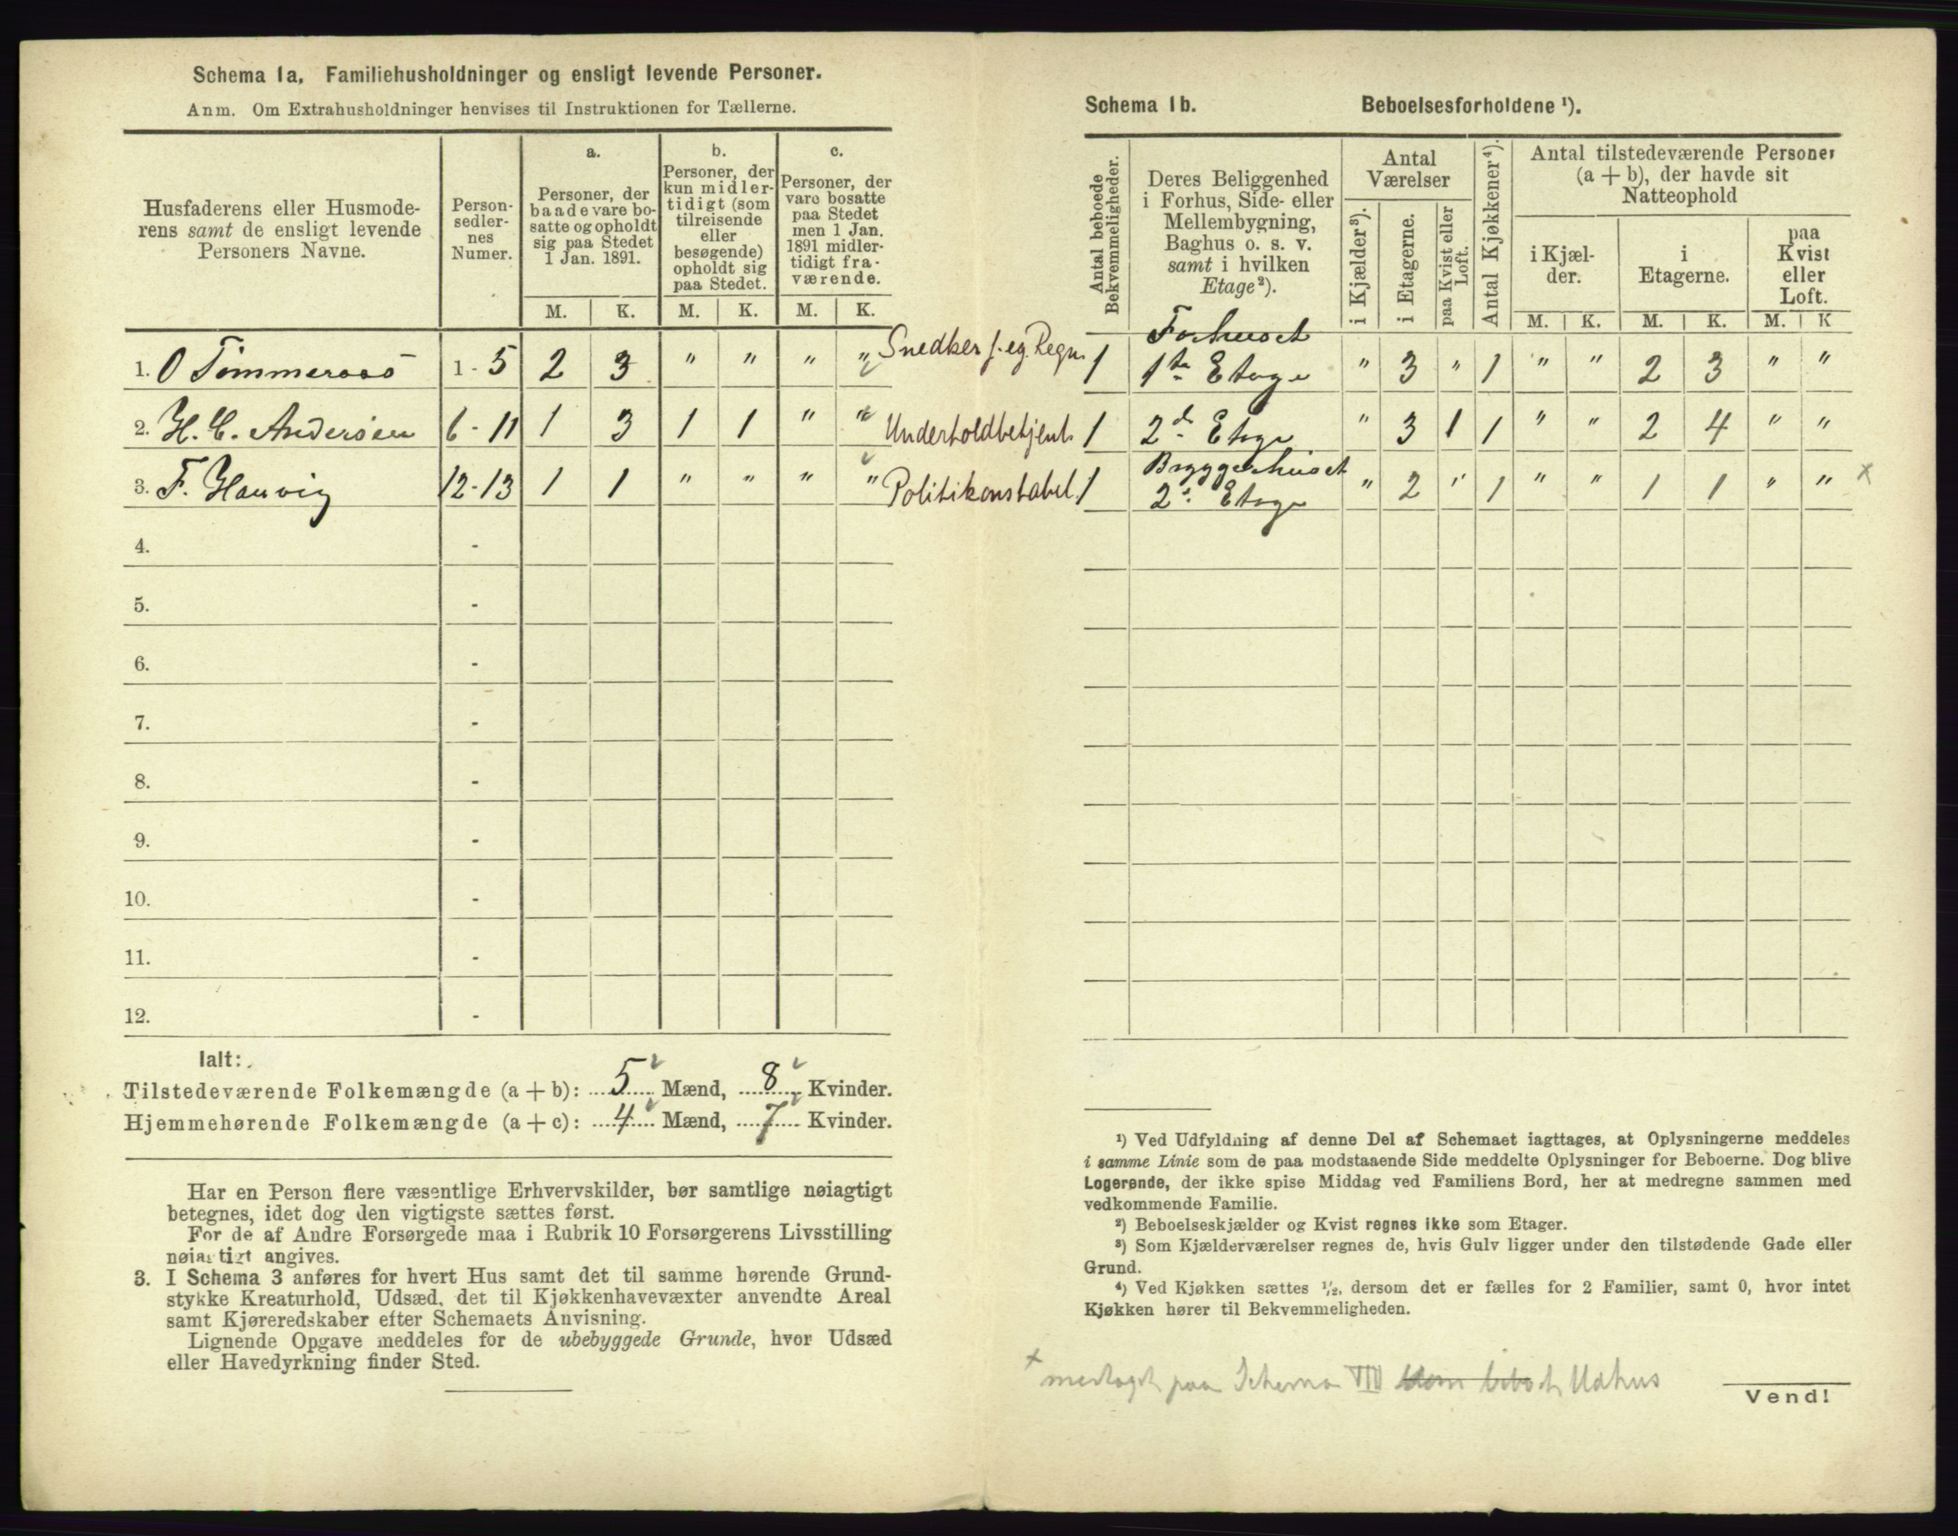 Schema 1a. Familiehusholdninger og ensligt levende Personer.
Anm. Om Extrahusholdninger henvises til Instruktionen for Tællerne.
Husfaderens eller Husmoderens samt de ensligt levende Personers Navne.
Person-sedler-nes Numer.
a. Personer, der baade vare bosatte og opholdt sig paa Stedet 1 Jan. 1891.
b. Personer, der kun midlertidigt (som tilreisende eller besøgende) opholdt sig paa Stedet.
c. Personer, der vare bosatte paa Stedet men 1 Jan. 1891 midlertidigt fraværende.
M. K. M. K. M. K.
1. O Tømmeraas 1 - 5 2 3 " " " " Snedker f. eg. Regn.
2. H. C. Andersen 6 - 11 1 3 1 1 " " Underholdbetjent
3. F. Hauvig 12 - 13 1 1 " " " " Politikonstabel
4. -
5. -
6. -
7. -
8. -
9. -
10. -
11. -
12. -
Ialt:
Tilstedeværende Folkemængde (a + b): 5 Mænd, 8 Kvinder.
Hjemmehørende Folkemængde (a + c): 4 Mænd, 7 Kvinder.
Har en Person flere væsentlige Erhvervskilder, bør samtlige nøiagtigt
betegnes, idet dog den vigtigste sættes først.
For de af Andre Forsørgede maa i Rubrik 10 Forsørgerens Livsstilling
nøiagtigt angives.
3. I Schema 3 anføres for hvert Hus samt det til samme hørende Grund-
stykke Kreaturhold, Udsæd, det til Kjøkkenhavevæxter anvendte Areal
samt Kjøreredskaber efter Schemaets Anvisning.
Lignende Opgave meddeles for de ubebyggede Grunde, hvor Udsæd
eller Havedyrkning finder Sted.
Schema 1b. Beboelsesforholdene ¹).
Antal beboede Bekvemmeligheder.
Deres Beliggenhed i Forhus, Side- eller Mellembygning, Baghus o. s. v. samt i hvilken Etage ²).
Antal Værelser
i Kjælder ³).
i Etagerne.
paa Kvist eller Loft.
Antal Kjøkkener ⁴).
Antal tilstedeværende Personer (a + b), der havde sit Natteophold
i Kjælder. i Etagerne. paa Kvist eller Loft.
M. K. M. K. M. K
Forhuset
1 1te Etage " 3 " 1 " " 2 3 " "
1 2d Etage " 3 1 1 " " 2 4 " "
Bryggerhuset
1 2. Etage " 2 " 1 " " 1 1 " " x
¹) Ved Udfyldning af denne Del af Schemaet iagttages, at Oplysningerne meddeles
i samme Linie som de paa modstaaende Side meddelte Oplysninger for Beboerne. Dog blive
Logerende, der ikke spise Middag ved Familiens Bord, her at medregne sammen med
vedkommende Familie.
²) Beboelseskjælder og Kvist regnes ikke som Etager.
³) Som Kjælderværelser regnes de, hvis Gulv ligger under den tilstødende Gade eller
Grund.
⁴) Ved Kjøkken sættes ½, dersom det er fælles for 2 Familier, samt 0, hvor intet
Kjøkken hører til Bekvemmeligheden.
x medtaget paa Schema VIII som bebot Udhus
Vend!